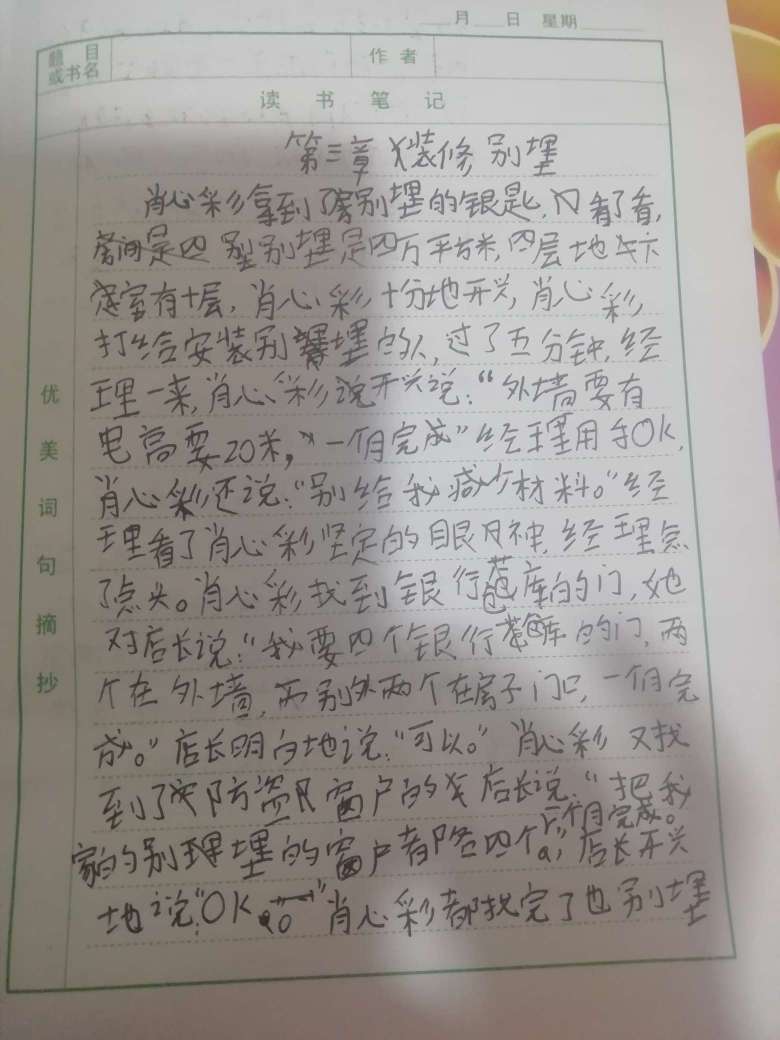 月 日 星期
题目或书名
作者
读书笔记
优美词句摘抄
第三章 装修别埋
肖心彩拿到了别埋的银匙,又看了看,
别埋是四万平方米,四层地
室有十层,肖心彩十分地开兴,肖心彩,
打给安装别埋的人,过了五分钟,经
理一来,肖心彩说开兴说:“外墙要有
电高要20米,一个月完成”经理用手OK,
肖心彩还说:“别给我减少材料。”经
理看了肖心彩坚定的眼神,经理点
了点头。肖心彩找到银行库的门,她
对店长说:“我要四个银行库的门,两
个在外墙,别外两个在房子门口,一个月完
成。”店长明白地说:“可以。”肖心彩又找
到了防盗窗户的店长说:“把我
家的别埋的窗户都四个,一个月完成。店长开兴
地说:“OK”肖心彩都找完了也别埋